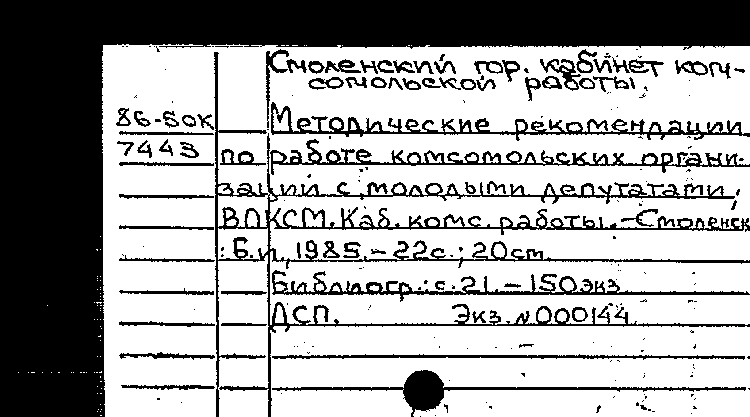 Смоленский гор. кабинет ком-
сомольской работы.
86-80К
Методические рекомендации
7443
по работе комсомольских органи-
заций с молодыми депутатами/
ВЛКСМ. Каб. комс. работы.-Смоленск
: Б.и., 1985.- 22с.; 20см.
Библиогр.: с.21. - 150экз
ДСП. Экз. №000144